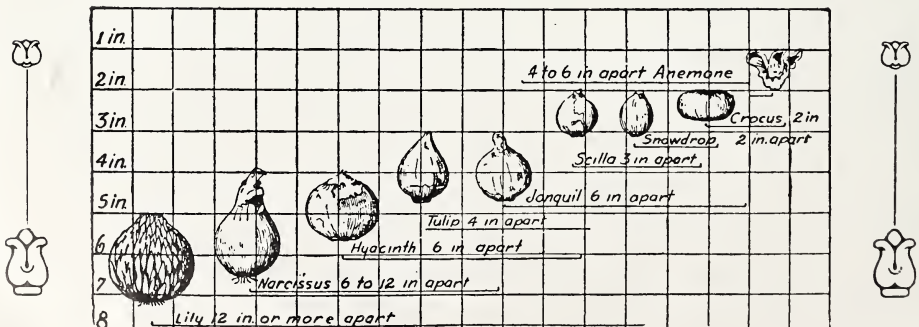 1 in.
2 in.
4 to 6 in apart Anemone
3 in.
Crocus, 2 in
Snowdrop, 2 in. apart
Scilla 3 in apart
4 in.
5 in.
Jonquil 6 in apart
Tulip 4 in apart
6
Hyacinth 6 in apart
7
Narcissus 6 to 12 in apart
8
Lily 12 in. or more apart